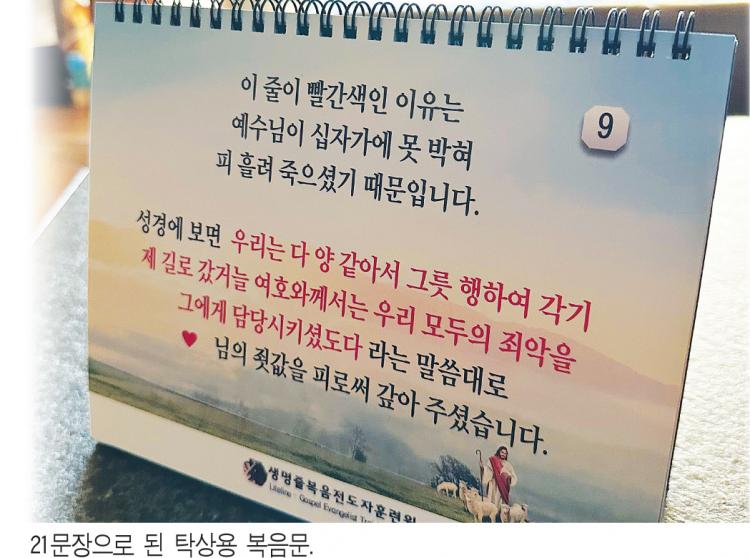 이 줄이 빨간색인 이유는
예수님이 십자가에 못 박혀
피 흘려 죽으셨기 때문입니다.
9
성경에 보면 우리는 다 양 같아서 그릇 행하여 각기
제 길로 갔거늘 여호와께서는 우리 모두의 죄악을
그에게 담당시키셨도다 라는 말씀대로
♥ 님의 죗값을 피로써 갚아 주셨습니다.
생명줄복음전도자훈련원
Lifeline Gospel Evangelist
21문장으로 된 탁상용 복음문.